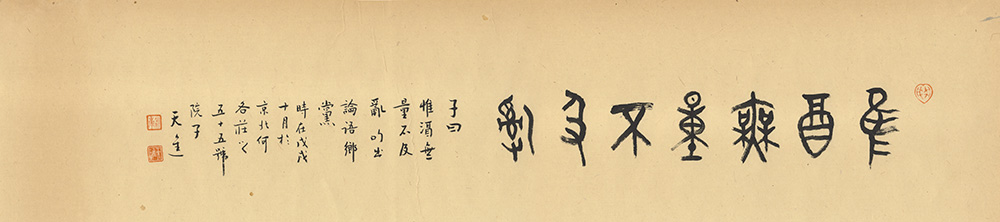 隹酉無量不及亂
子曰
惟酒無
量不及
亂 句出
論語鄉
黨
時在戊戌
十月於
京北何
各莊
五十五號
院子
天